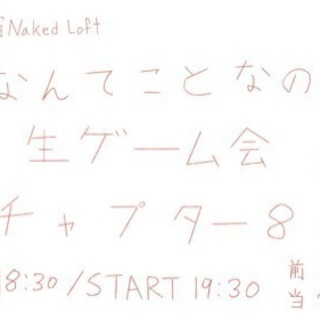 Naked Loft
なんてことなの
生ゲーム会
チャプター8
18:30/START 19:30 前
当